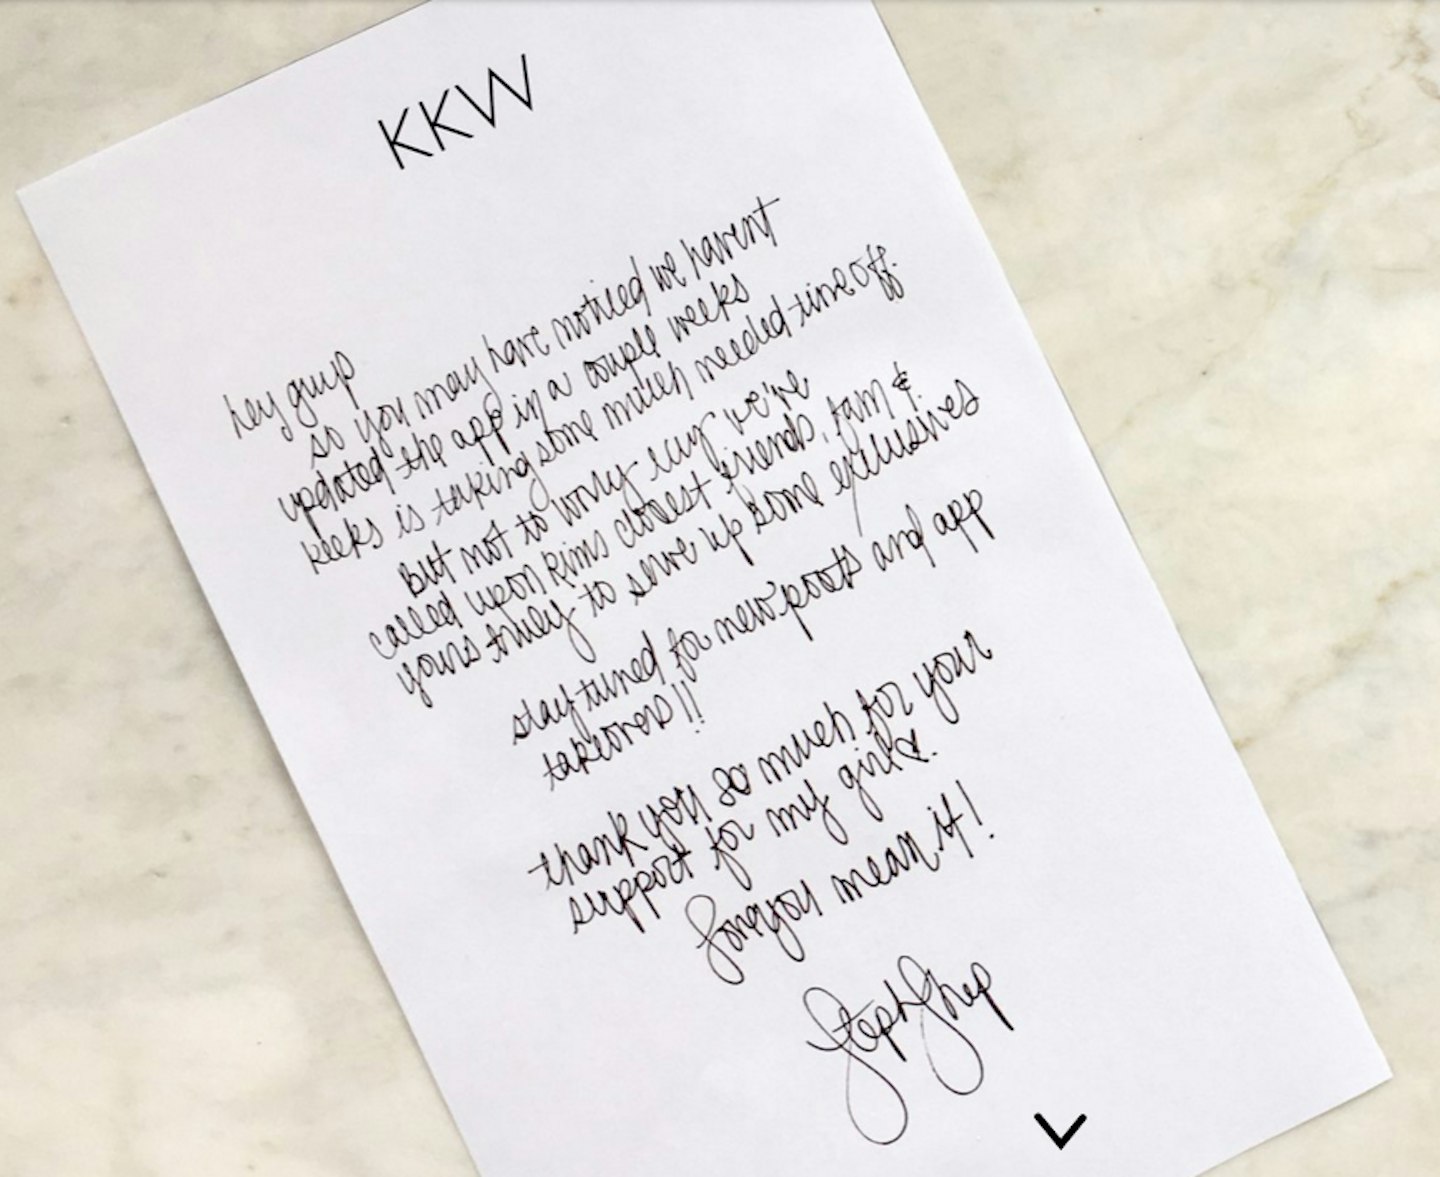 KKW
hey guys
so you may have noticed we havent
updated the app in a couple weeks
keeks is taking some much needed time off.
But not to worry we're
called upon kims closest friends, fam &
yours truley to serve up some exclusives
stay tuned for new posts and app
takeovers!!
thank you so much for your
support for my girl.
love you mean it!
Steph Shep